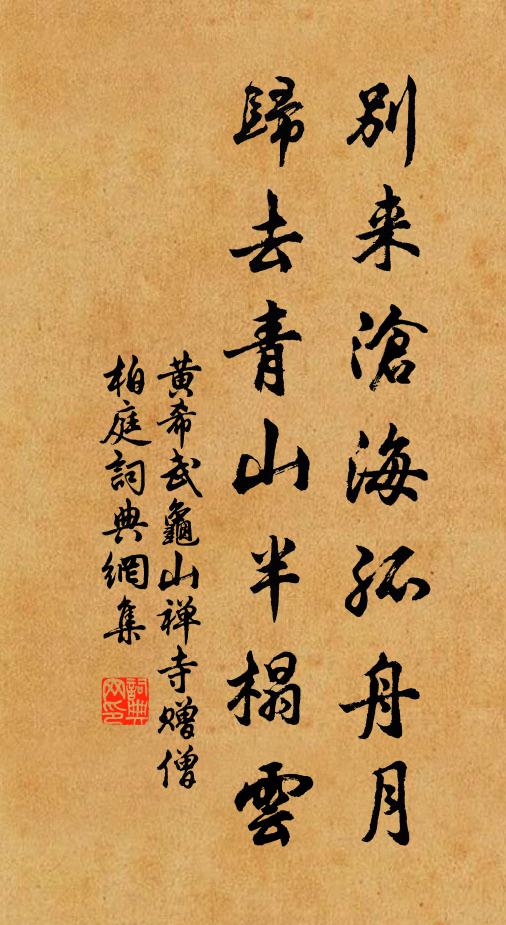 別来滄海孤舟月
歸去青山半榻雲
黄希武龜山禅寺赠僧
柏庭詞典網集
詞典网印